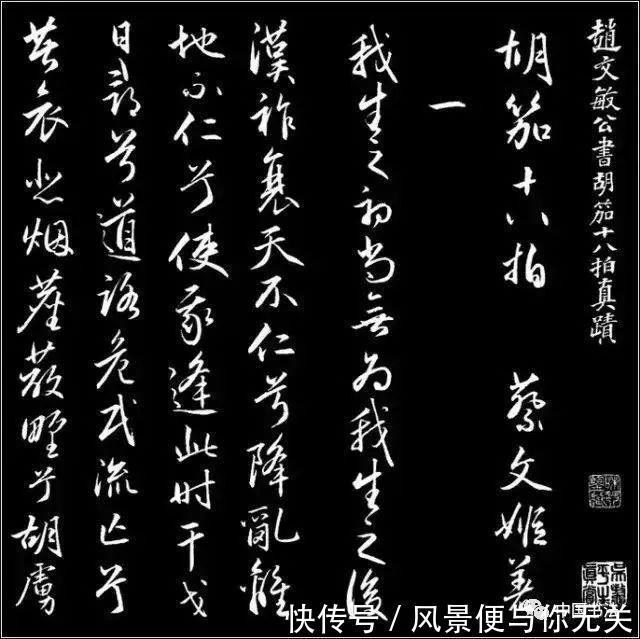 趙文敏公書胡笳十八拍真蹟
胡笳十八拍 蔡文姬
一
我生之初尚無為我生之後
漢祚衰天不仁兮降亂離
地不仁兮使我逢此時干戈
日尋兮道路危民流亡兮
共哀悲烟塵蔽野兮胡虜
中国书法
快传号 / 风景便与你无关